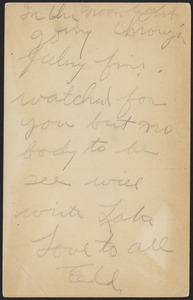 In the
going through
feeling fine
watched for
you but no
body to be
see will
write Later
Love to all